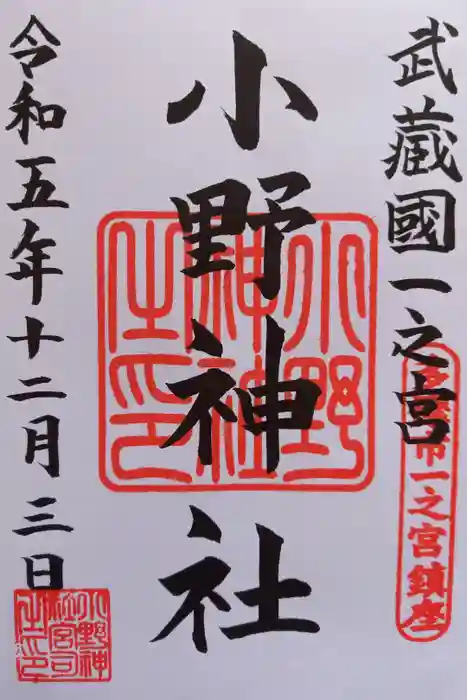 武蔵國一之宮
多摩市一之宮鎮座
小野神社
小野神社之印
令和五年十二月三日
小野神社宮司之印